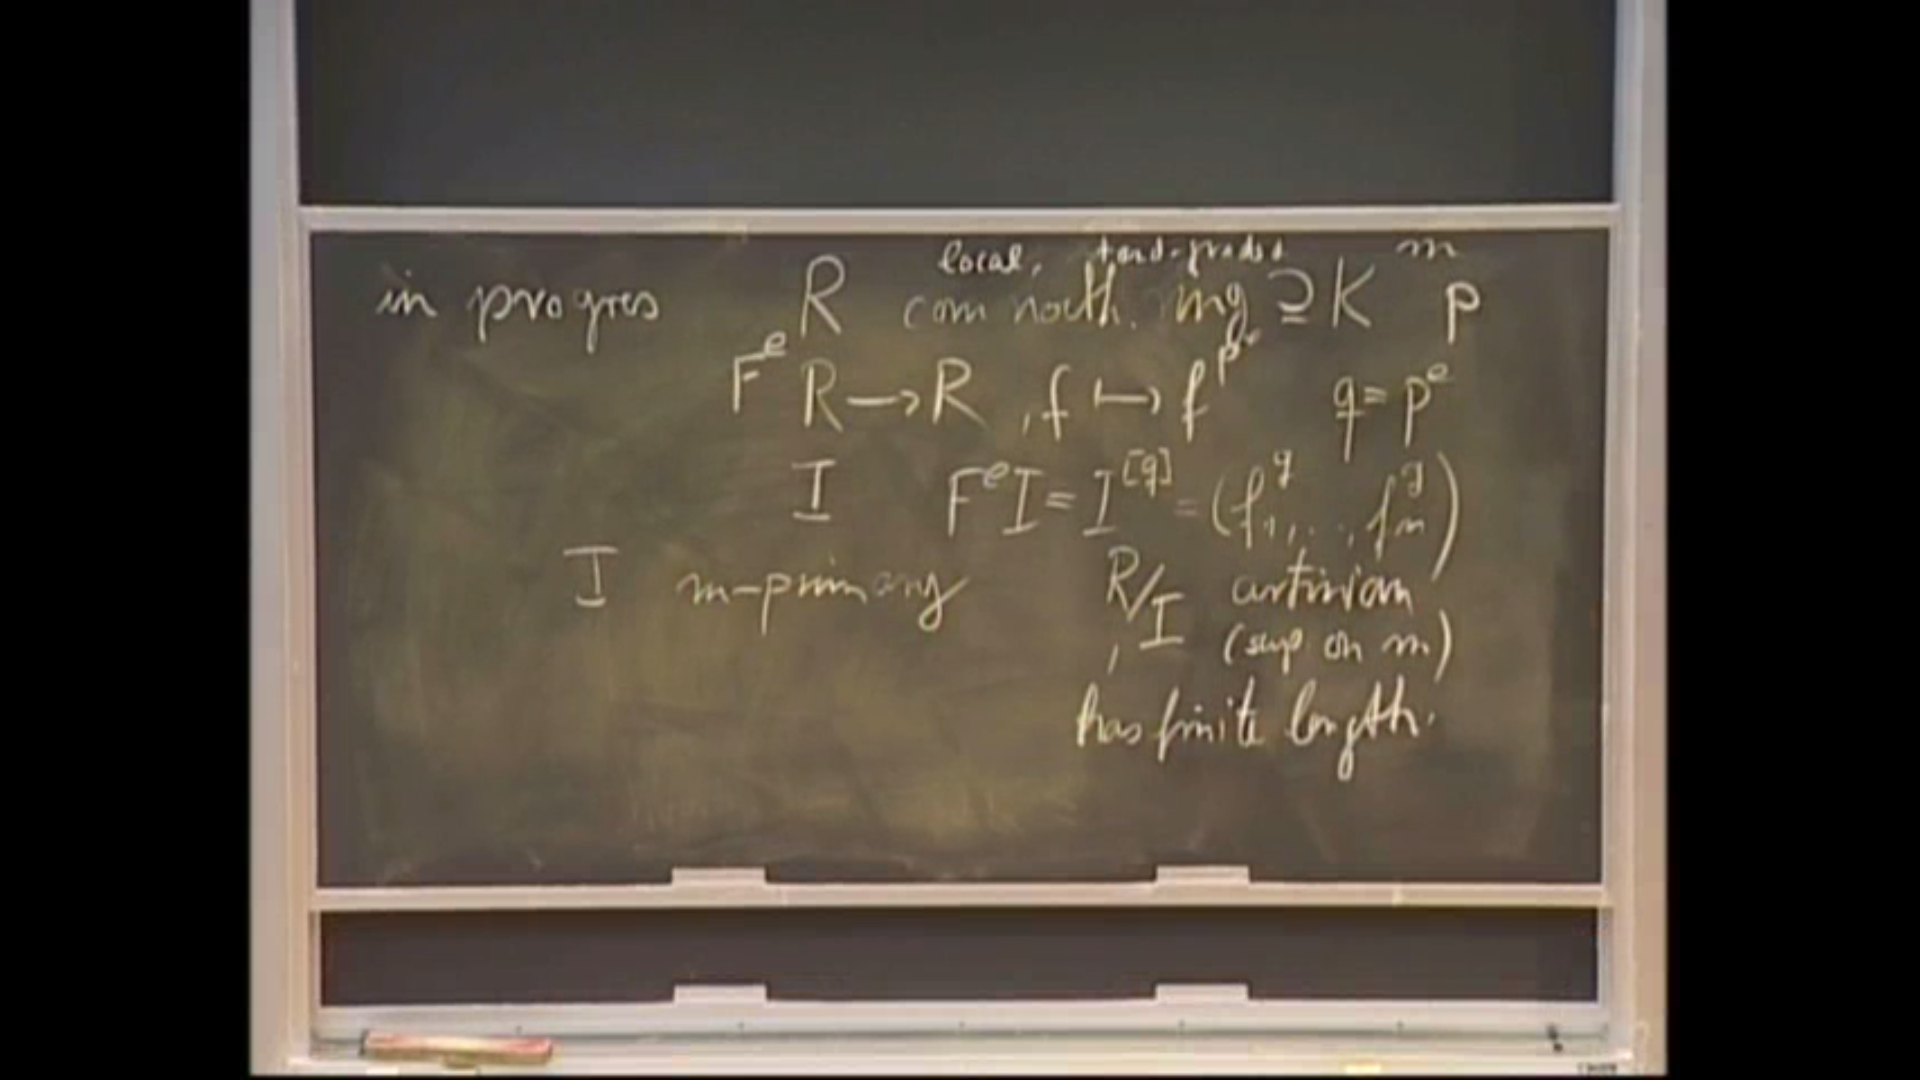 local, stand.-graded m
in progres R com noeth. ring ⊇ K p
F^e R → R, f ↦ f^{p^e} q = p^e
I F^e I = I^{[q]} = (f_1^q, ..., f_n^q)
I m-primary R/I artinian
(sup. on m)
has finite length.